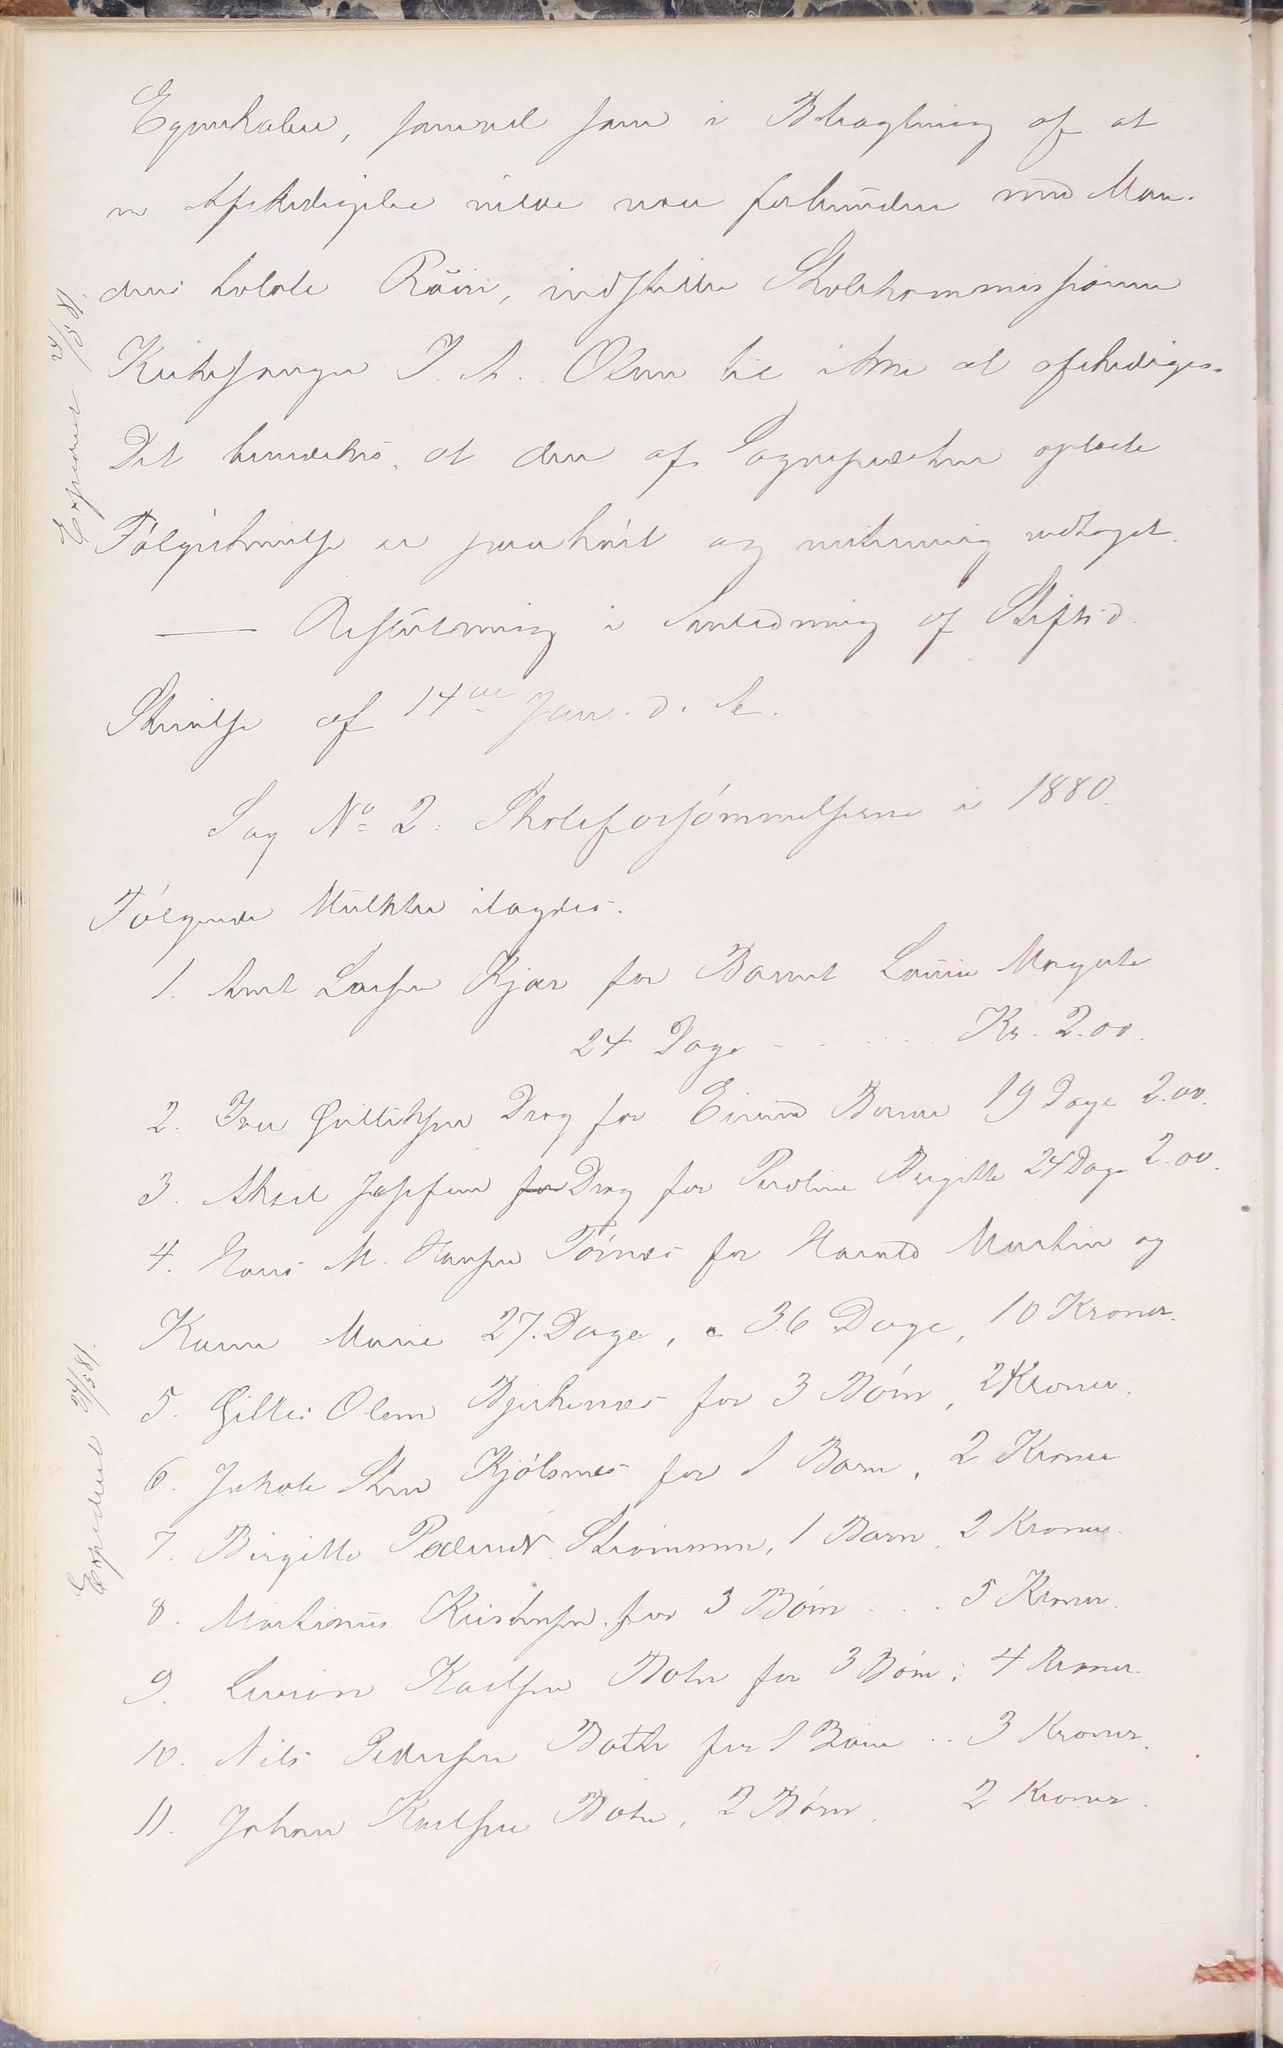 Egenskaber, samvel som i Betragtning af at
en Afskedigelse vilde være forbunden med Man-
dens totale Ruin, indstiller Skolekommissionen
Kirkesanger J. A. Olsen til ikke at afskediges.
Det bemærkes, at den af Sognepræsten oplæste
Følgeskrivelse er paahørt og enstemmig vedtaget.
— Beslutning i Anledning af Stiftsd.
Skrivelse af 14de Jan. d. A.
Sag No 2. Skoleforsømmelserne i 1880.
Følgende Mulkter ilagdes.
1. Arnt Larsen Kjær for Barnet Laura Margrete
24 Dage - . . . . . Kr. 2.00.
2. Iver Gulliksen Drag for Eivind Berner 19 Dage 2.00.
3. Aksel Josefsen for Drag for Peroline Birgitte 24 Dage 2.00.
4. Hans M. Hansen Tørnes for Harald Martin og
Karen Marie 27. Dage, a 36 Dage, 10 Kroner.
5. Gilles Olsen Bjerkenes for 3 Børn, 24 Kroner.
6. Jakob Sten Kjølsnes for 1 Barn, 2 Kroner
7. Birgitte Pedersd. Strømmen, 1 Barn, 2 Kroner.
8. Martinus Kristensen for 3 Børn . . . 5 Kroner.
9. Karlsen Botn for 3 Børn: 4 Kroner.
10. Nils Pedersen Botn for 1 Barn . . 3 Kroner.
11. Johan Karlsen Botn, 2 Børn, 2 Kroner.
Expederet 24/5 81.
Expederet 24/5 81.